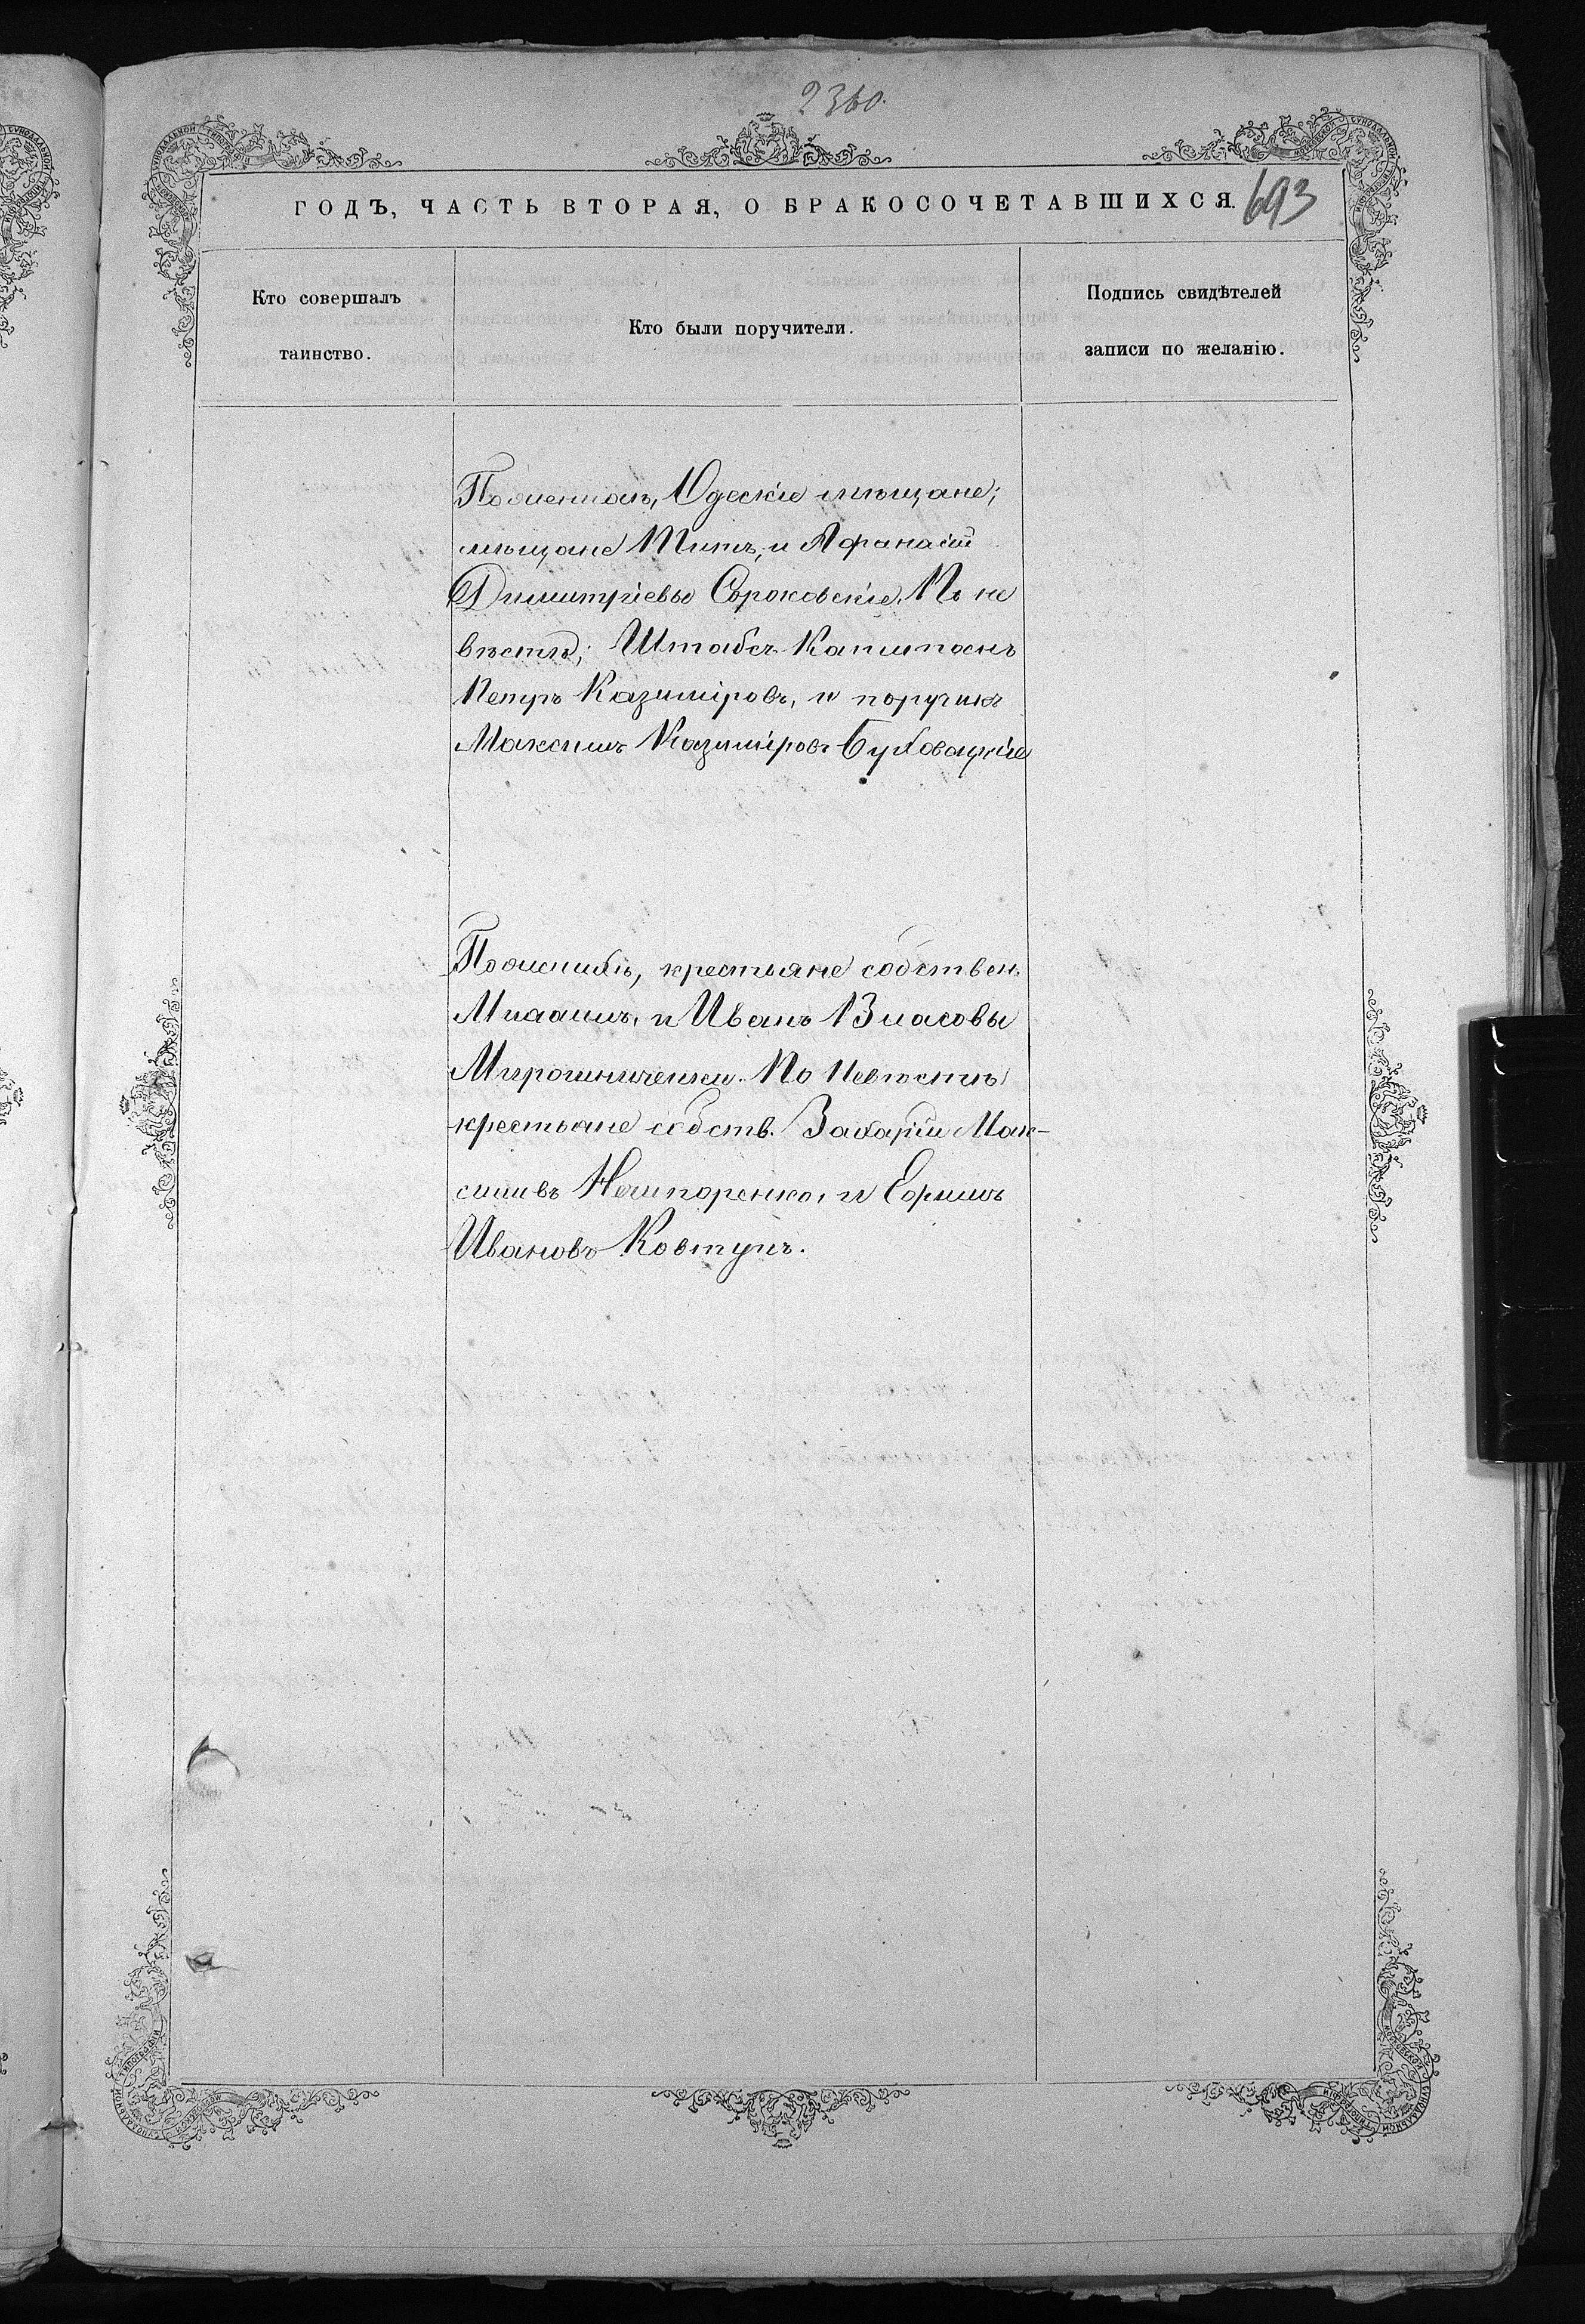 2360.
693
ГОДЪ, ЧАСТЬ ВТОРАЯ, О БРАКОСОЧЕТАВШИХСЯ.
Кто совершалъ
таинство.
Кто были поручители.
Подпись свидѣтелей
записи по желанію.
По женихѣ, Одескіе мѣщане;
мѣщане Титъ, и Афанасій
Димитріевы Сороковскіе. По не
вѣстѣ; Штабсъ Капитанъ
Петръ Казиміровъ, и поручикъ
Максимъ Казиміровъ Буховецкіе
По женихѣ, крестьяне собствен.
и Иванъ Власовы
Мирошниченки. По невѣстѣ
крестьяне собств. Захарій Мак-
симовъ Нечипоренко, и Ефимъ
Ивановъ Ковтунъ.